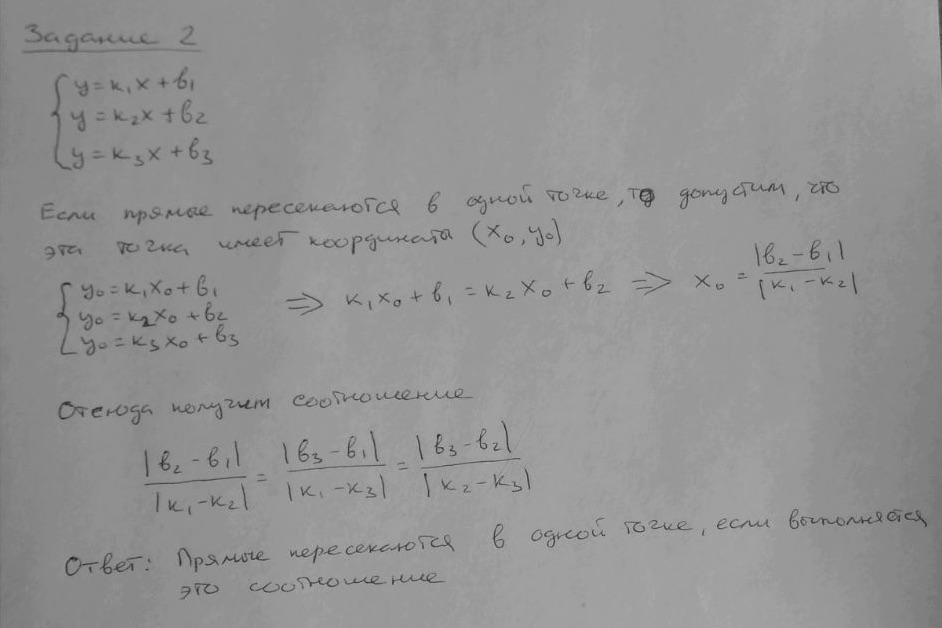 Задание 2
y = k₁x + b₁
y = k₂x + b₂
y = k₃x + b₃
Если прямые пересекаются в одной точке, то допустим, что
эта точка имеет координаты (x₀, y₀)
y₀ = k₁x₀ + b₁
y₀ = k₂x₀ + b₂
y₀ = k₃x₀ + b₃
⇒ k₁x₀ + b₁ = k₂x₀ + b₂ ⇒ x₀ = |b₂ - b₁| / |k₁ - k₂|
Отсюда получим соотношение
|b₂ - b₁| / |k₁ - k₂| = |b₃ - b₁| / |k₁ - k₃| = |b₃ - b₂| / |k₂ - k₃|
Ответ: Прямые пересекаются в одной точке, если выполняется
это соотношение